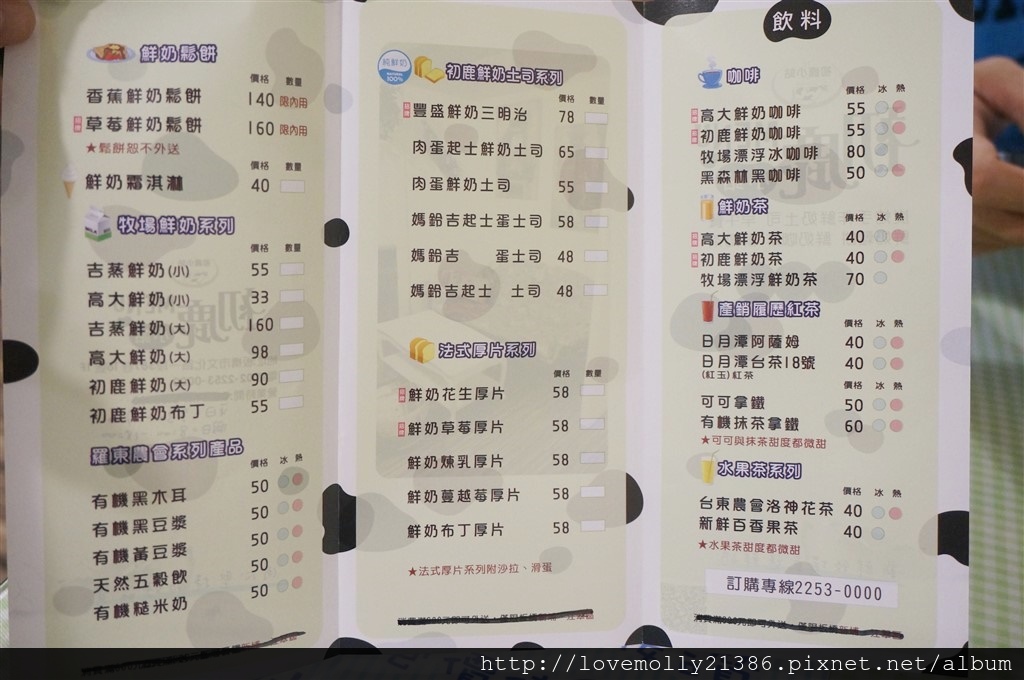 鮮奶鬆餅
價格 數量
香蕉鮮奶鬆餅 140 限內用
草莓鮮奶鬆餅 160 限內用
★鬆餅恕不外送
價格 數量
鮮奶霜淇淋 40
牧場鮮奶系列
價格 數量
吉蒸鮮奶(小) 55
高大鮮奶(小) 33
吉蒸鮮奶(大) 160
高大鮮奶(大) 98
初鹿鮮奶(大) 90
初鹿鮮奶布丁 55
羅東農會系列產品
價格 冰 熱
有機黑木耳 50
有機黑豆漿 50
有機黃豆漿 50
天然五穀飲 50
有機糙米奶 50
純鮮奶
NATURAL
100%
初鹿鮮奶土司系列
價格 數量
豐盛鮮奶三明治 78
肉蛋起士鮮奶土司 65
肉蛋鮮奶土司 55
媽鈴吉起士蛋土司 58
媽鈴吉 蛋土司 48
媽鈴吉起士 土司 48
法式厚片系列
價格 數量
鮮奶花生厚片 58
鮮奶草莓厚片 58
鮮奶煉乳厚片 58
鮮奶蔓越莓厚片 58
鮮奶布丁厚片 58
★法式厚片系列附沙拉、滑蛋
飲料
咖啡
價格 冰 熱
高大鮮奶咖啡 55
初鹿鮮奶咖啡 55
牧場漂浮冰咖啡 80
黑森林黑咖啡 50
鮮奶茶
價格 冰 熱
高大鮮奶茶 40
初鹿鮮奶茶 40
牧場漂浮鮮奶茶 70
產銷履歷紅茶
價格 冰 熱
日月潭阿薩姆 40
日月潭台茶18號 40
(紅玉)紅茶
價格 冰 熱
可可拿鐵 50
有機抹茶拿鐵 60
★可可與抹茶甜度都微甜
水果茶系列
價格 冰 熱
台東農會洛神花茶 40
新鮮百香果茶 40
★水果茶甜度都微甜
訂購專線2253-0000
http://lovemolly21386.pixnet.net/album